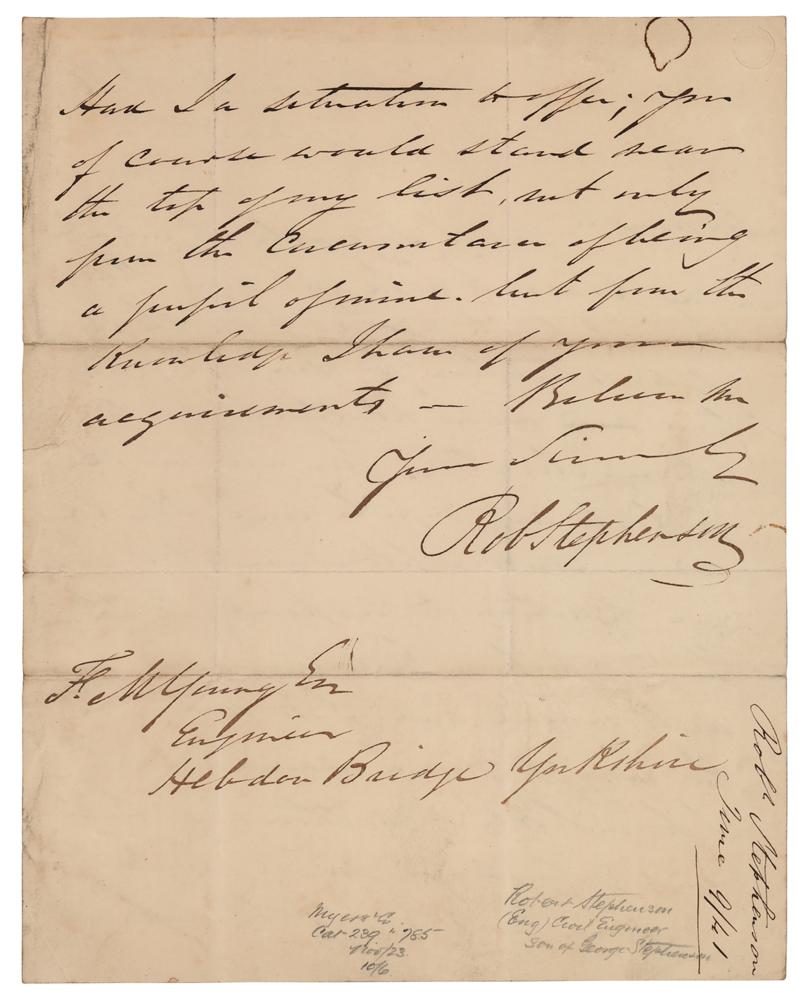 Had I a situation to offer; you
of course would stand near
the top of my list, not only
from the Circumstance of being
a pupil of mine. but from the
Knowledge I have of your
acquirements — Believe Me
Your Sincerely
Rob Stephenson
M Young
Engineer
Hebdon Bridge Yorkshire
Robt Stephenson
June 9/41
Myers & Co.
Cat 239 " 785
Nov/23.
10/6
Robert Stephenson
(Eng) Civil Engineer
Son of George Stephenson